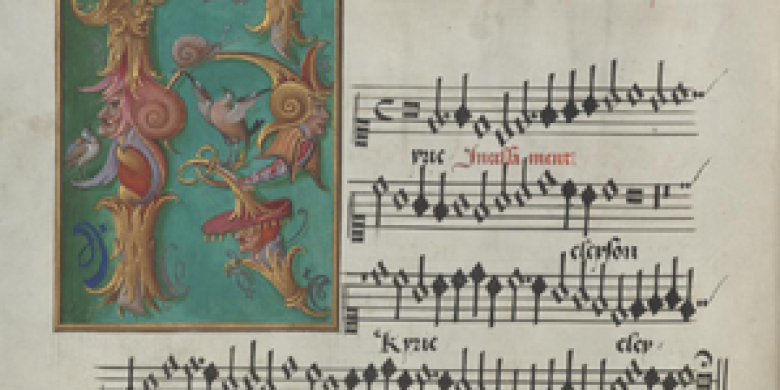 yrie Incessa ment
eleyson
Kyrie eley